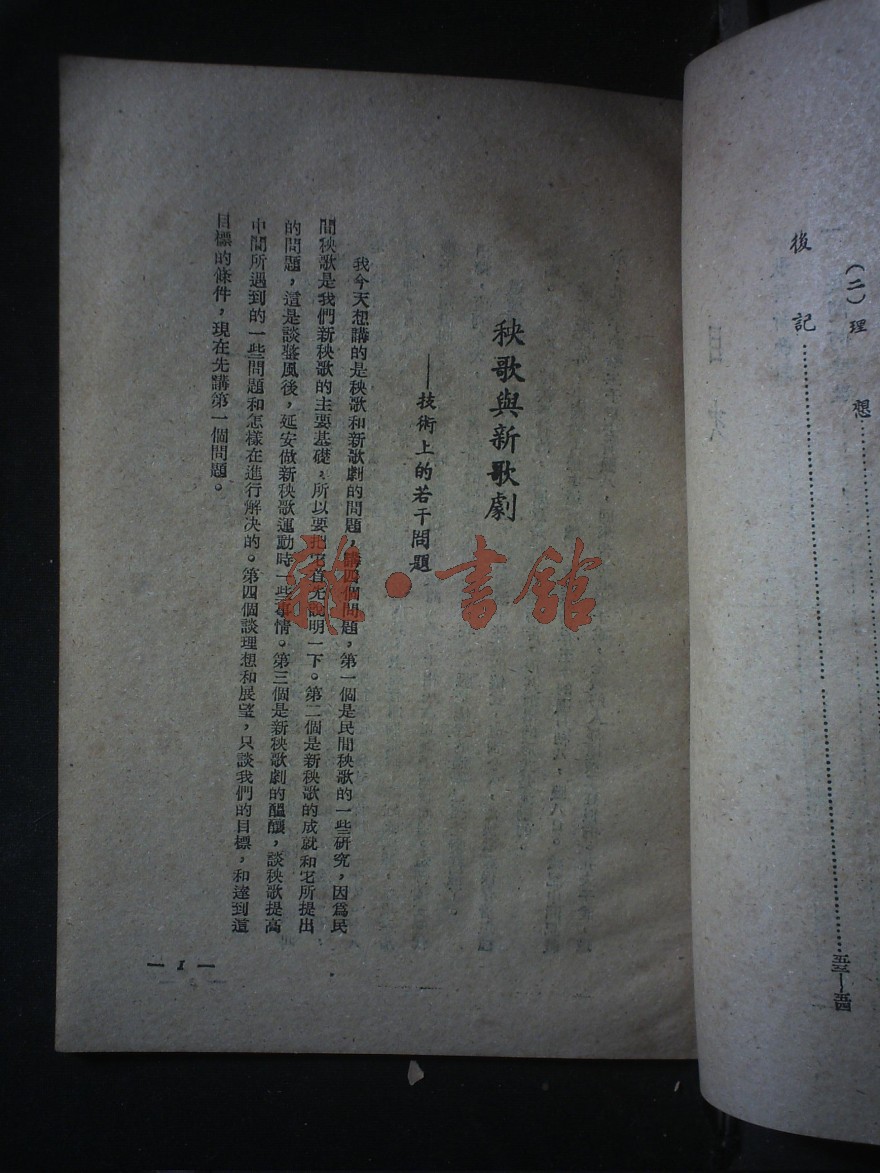 (二)理想
後記……五三—五四
秧歌與新歌劇
——技術上的若干問題
我今天想講的是秧歌和新歌劇的問題，講四個問題，第一個是民間秧歌的一些研究，因爲民
間秧歌是我們新秧歌的主要基礎，所以要把它首先說明一下。第二個是新秧歌的成就和它所提出
的問題，這是談整風後，延安做新秧歌運動時一些事情。第三個是新秧歌劇的醞釀，談秧歌提高
中間所遇到的一些問題和怎樣在進行解决的。第四個談理想和展望，只談我們的目標，和達到這
目標的條件，現在先講第一個問題。
— 1 —
雜·書館